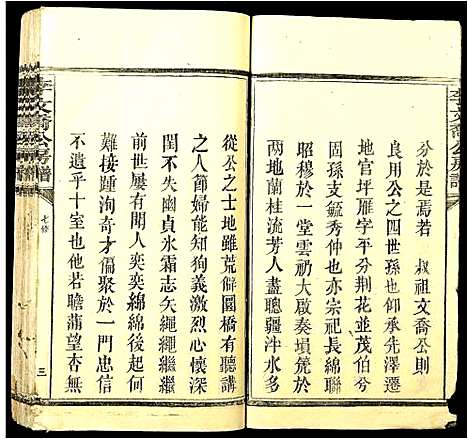 分於是焉若 叔祖文喬公則
良用公之四世孫也仰承先澤遷
地官坪雁字平分荆花並茂伯兮
固孫支毓秀仲也亦宗祀長綿聯
昭穆於一堂雲礽大啟奏塤箎於
兩地蘭桂流芳人盡聰疆泮水多
從公之士地雖荒僻圜橋有聽講
之人節婦能知狗義激烈心懷深
閨不失幽貞氷霜志矢繩繩繼繼
前世屢有聞人奕奕綿綿後起何
難接踵洵奇才偏聚於一門忠信
不遺乎十室也他若瞻蒲望杏無
李文喬公房譜
七修
三
李文喬公房譜